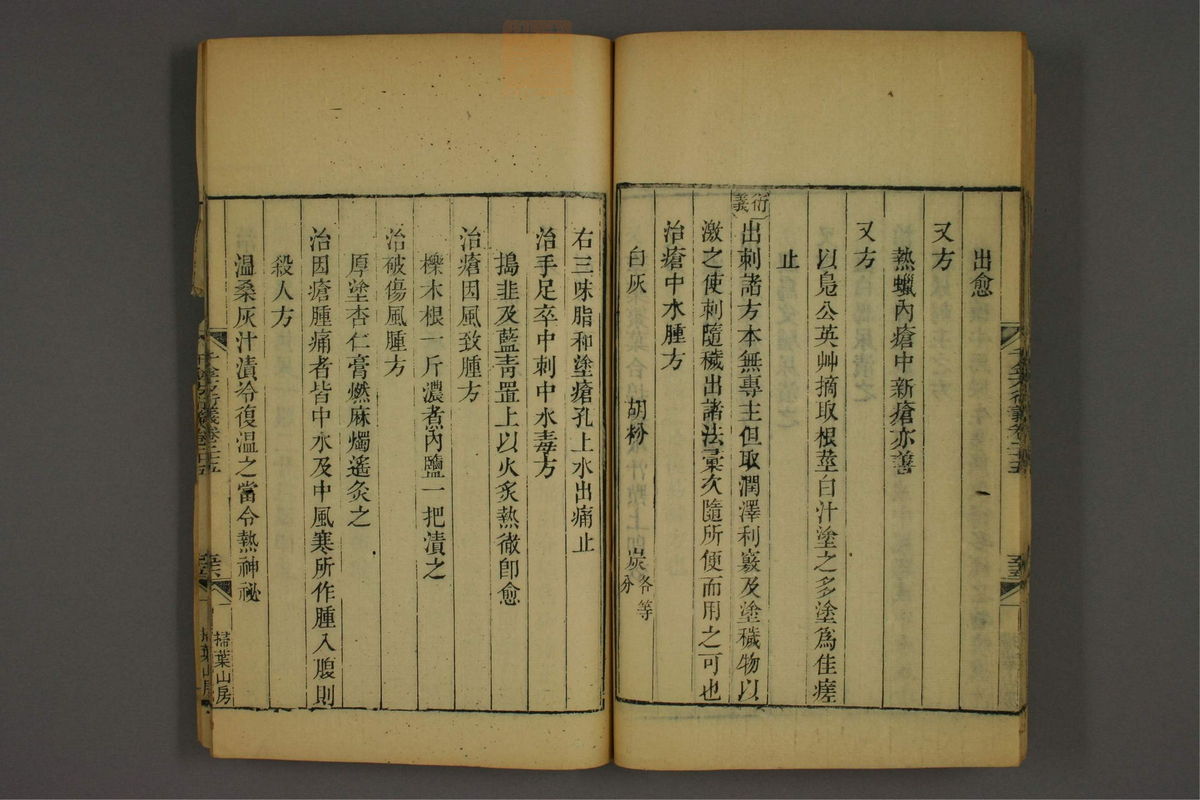 出愈
又方
熱蠟內瘡中新瘡亦善
又方
以鳧公英艸摘取根莖白汁塗之多塗爲佳瘥
止
衍義
出刺諸方本無專主但取潤澤利竅及塗穢物以
激之使刺隨穢出諸法彙次隨所便而用之可也
治瘡中水腫方
白灰 胡粉 炭各等分
右三味脂和塗瘡孔上水出痛止
治手足卒中刺中水毒方
搗韭及藍靑置上以火炙熱徹卽愈
治瘡因風致腫方
櫟木根一斤濃煑內鹽一把漬之
治破傷風腫方
厚塗杏仁膏燃麻燭遙灸之
治因瘡腫痛者皆中水及中風寒所作腫入腹則
殺人方
溫桑灰汁漬冷復溫之當令熱神祕
千金方衍義卷二十五
掃葉山房